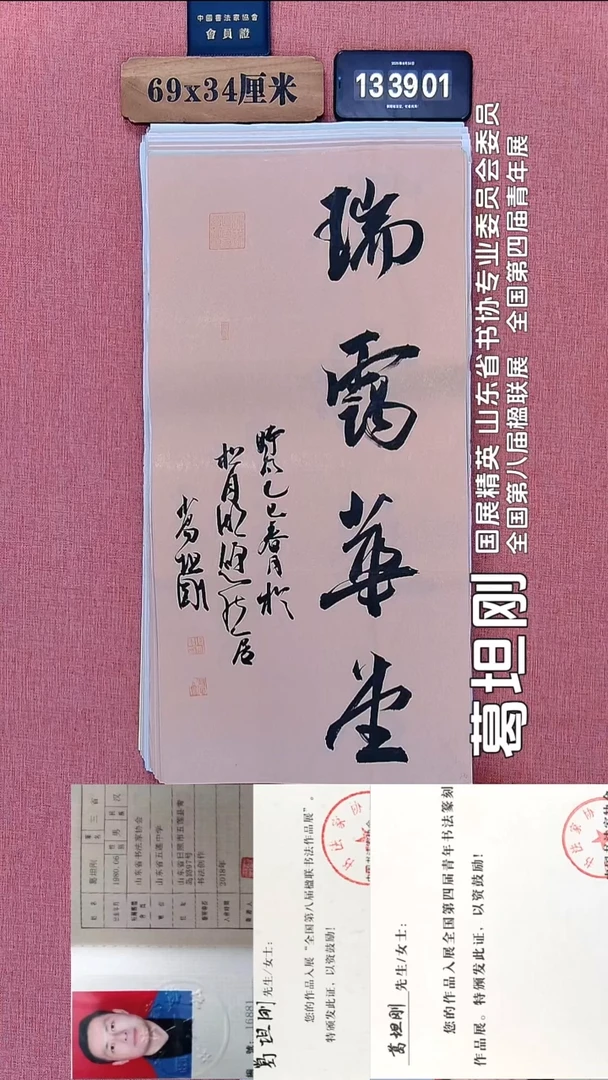 中國書法家協會
會員證
69x34厘米
13 39 01
瑞靄華堂
時在乙巳春月於
松月
葛坦剛
葛坦刚
国展精英 山东省书协专业委员会委员
全国第八届楹联展 全国第四届青年展
山东省书法家协会
山东省五莲中学
书法创作
2018年
葛坦刚 先生/女士：
您的作品入展“全国第八届楹联书法作品展”。
特颁发此证，以资鼓励！
葛坦刚 先生/女士：
您的作品入展全国第四届青年书法篆刻
作品展。特颁发此证，以资鼓励！